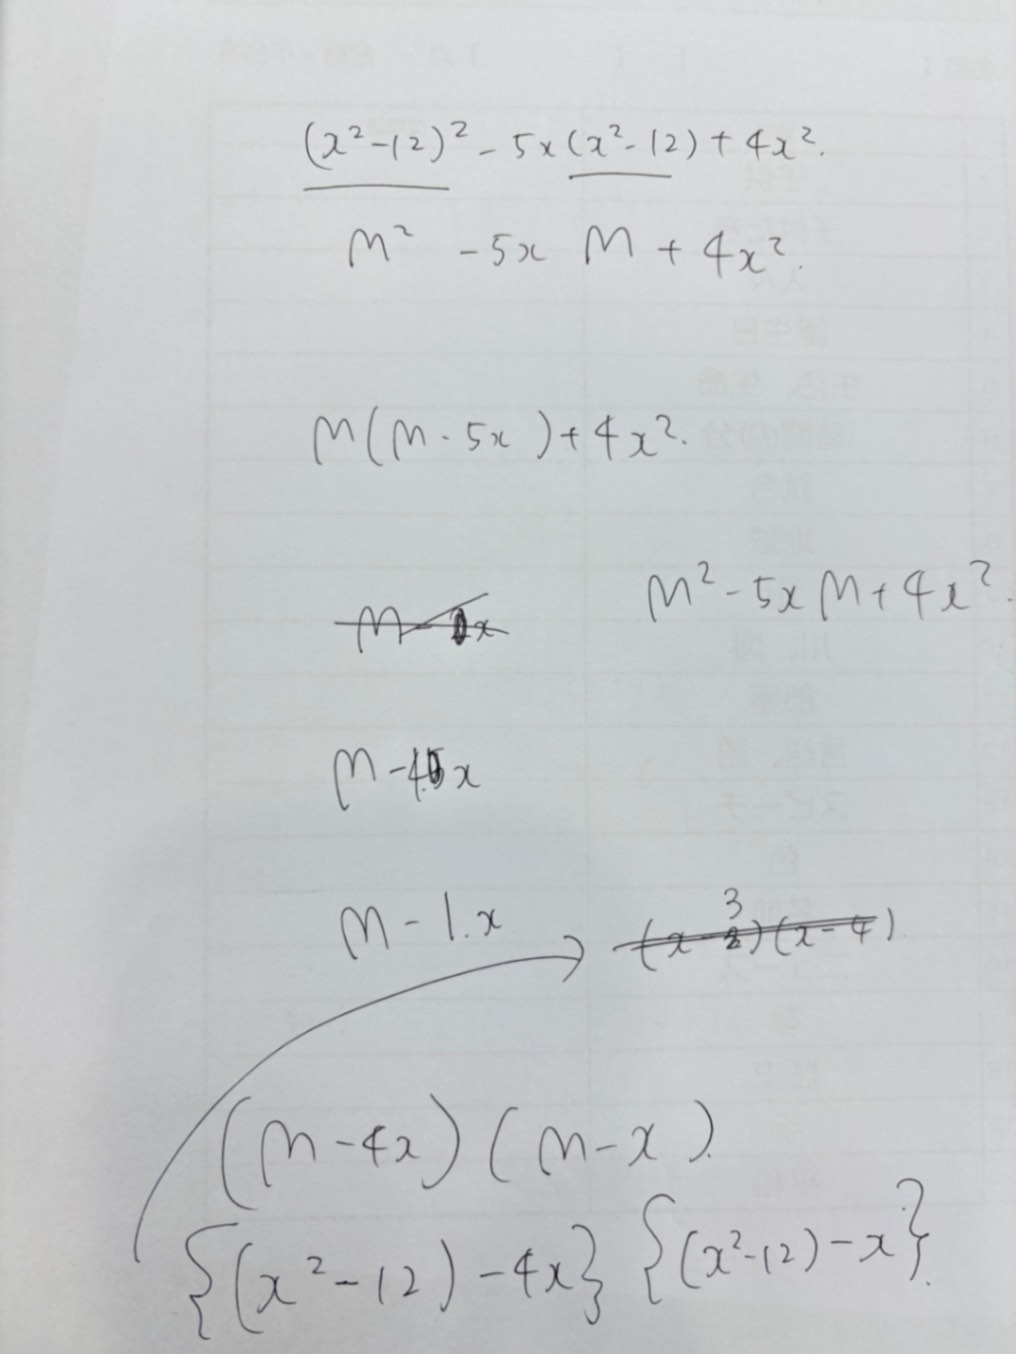 (x²-12)² - 5x(x²-12) + 4x².
M² - 5x M + 4x².
M(M - 5x) + 4x².
M² - 5x M + 4x².
M - 4x
M - 1.x
(x - 3)(x - 4).
(M - 4x)(M - x).
{(x² - 12) - 4x} {(x² - 12) - x}.